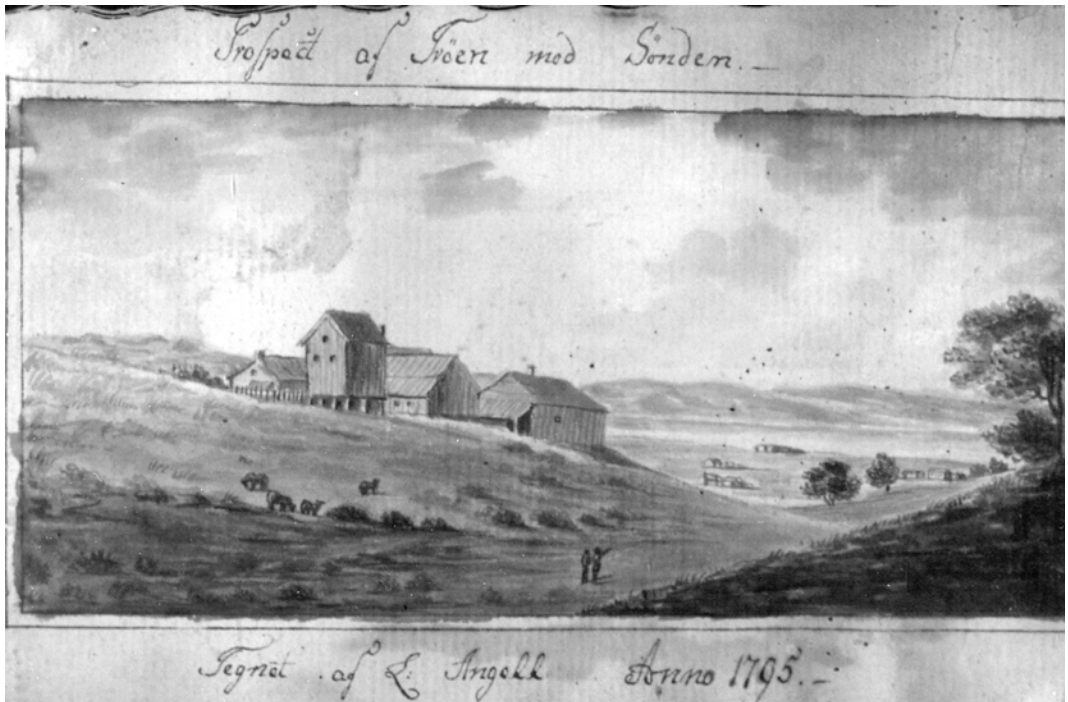 Prospect af Tröen mod Sönden.
Tegnet af L: Angell Anno 1795.